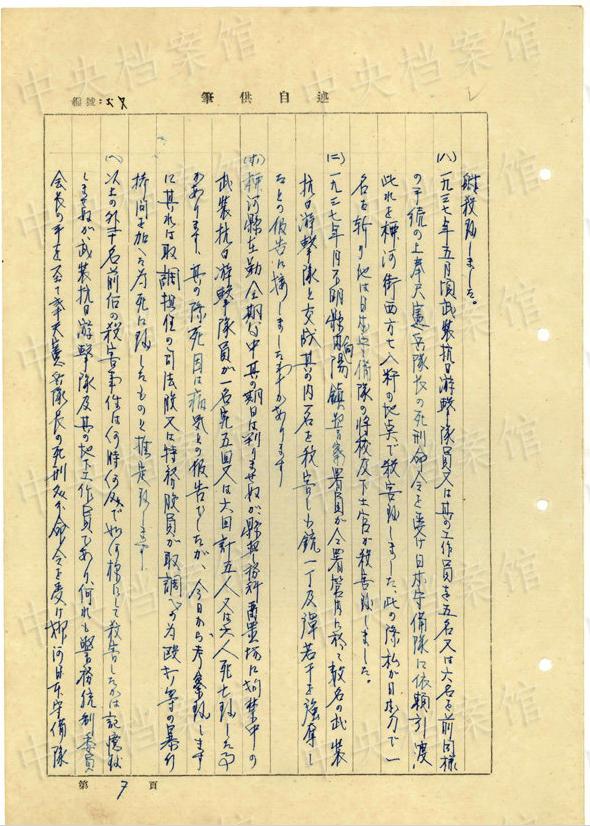 編號:
筆供自述
射殺致しました。
(八) 一九三七年五月頃武装抗日游撃隊員又は其の工作員を五名又は六名を前同様
の手続の上奉天憲兵隊長の死刑命令を受け日本守備隊に依頼引渡し
此れを柳河街西方七、八粁の地点で殺害致しました、此の際私が日本刀で一
名を斬り他は日本守備隊の将校及下士官が殺害致しました。
一九三七年月不明柳河県向陽鎮警察署員が仝署管内に於て数名の武装
抗日游撃隊と交戦其の内一名を殺害し小銃一丁及弾若干を強奪し
たとの報告に接しました事があります
柳河縣在勤全期間中其の期日は判りませぬが縣警務科留置場に拘禁中の
武装抗日游撃隊員が一名宛五回又は六回計五人又は六人死亡致した事
があります、其の際死因は病気との報告でしたが、今日から考察致します
に其れは取調担任の司法股又は特務股員が取調べの為殴打等の暴行
拷問を加へた為死に致したものと推定致します
以上の外十名前后の殺害事件は何時何処で如何様にして殺害したかは記憶致
しませぬが、武装抗日游撃隊及其の地下工作員であり、何れも警務統制委員
会長の手を至て奉天憲兵隊長の死刑の命令を受け柳河日本守備隊
第 7 頁
中央档案馆